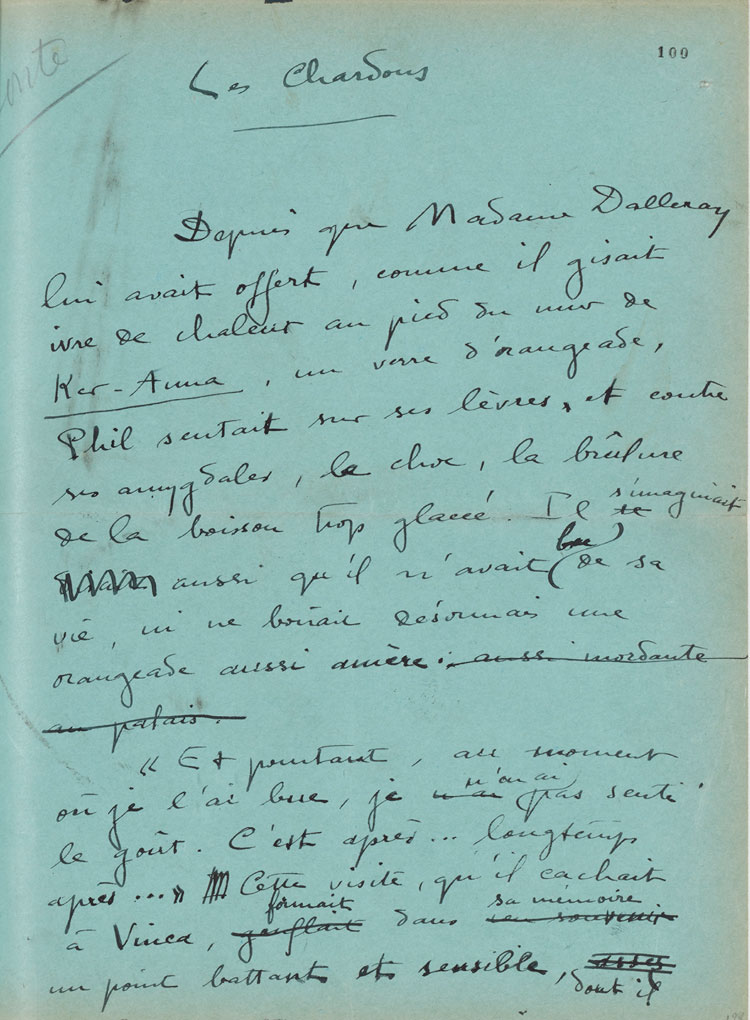 100
Les Chardons
Depuis que Madame Dalleray
lui avait offert, comme il gisait
ivre de chaleur au pied du mur de
Ker-Anna, un verre d'orangeade,
Phil sentait sur ses lèvres, et contre
ses amygdales, le choc, la brûlure
de la boisson trop glacée. Il se s'imaginait
aussi qu'il n'avait bu de sa
vie, ni ne boirait désormais une
orangeade aussi amère. aussi mordante
au palais.
« Et pourtant, au moment
où je l'ai bue, je n'ai n'en ai pas senti
le goût. C'est après... longtemps
après... » Cette visite, qu'il cachait
à Vinca, gonflait formait dans son souvenir sa mémoire
un point battant et sensible, dont il